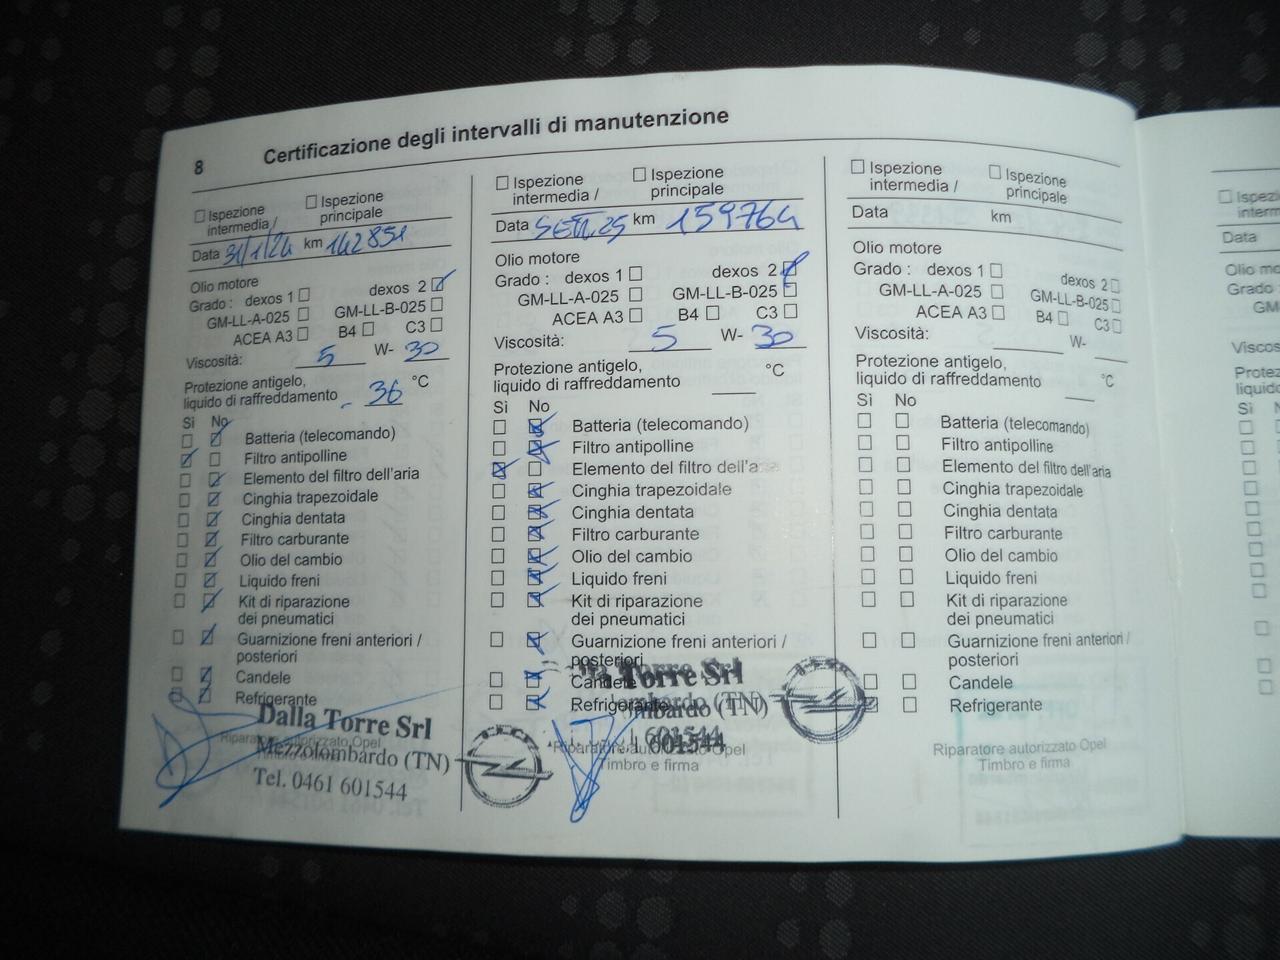 8 Certificazione degli intervalli di manutenzione
Ispezione intermedia / Ispezione principale
Data 31/1/24 km 142851
Olio motore
Grado : dexos 1 dexos 2
GM-LL-A-025 GM-LL-B-025
ACEA A3 B4 C3
Viscosità: 5 W- 30
Protezione antigelo,
liquido di raffreddamento - 36 °C
Sì No
Batteria (telecomando)
Filtro antipolline
Elemento del filtro dell'aria
Cinghia trapezoidale
Cinghia dentata
Filtro carburante
Olio del cambio
Liquido freni
Kit di riparazione
dei pneumatici
Guarnizione freni anteriori /
posteriori
Candele
Refrigerante
Dalla Torre Srl
Riparatore autorizzato Opel
Mezzolombardo (TN)
Timbro e firma
Tel. 0461 601544
Ispezione intermedia / Ispezione principale
Data SETT 25 km 159764
Olio motore
Grado : dexos 1 dexos 2
GM-LL-A-025 GM-LL-B-025
ACEA A3 B4 C3
Viscosità: 5 W- 30
Protezione antigelo, °C
liquido di raffreddamento
Sì No
Batteria (telecomando)
Filtro antipolline
Elemento del filtro dell'aria
Cinghia trapezoidale
Cinghia dentata
Filtro carburante
Olio del cambio
Liquido freni
Kit di riparazione
dei pneumatici
Guarnizione freni anteriori /
posteriori
Torre Srl
Candele
Refrigerante
(TN)
601544
Riparatore autorizzato Opel
Timbro e firma
Ispezione intermedia / Ispezione principale
Data km
Olio motore
Grado : dexos 1 dexos 2
GM-LL-A-025 GM-LL-B-025
ACEA A3 B4 C3
Viscosità: W-
Protezione antigelo,
liquido di raffreddamento °C
Sì No
Batteria (telecomando)
Filtro antipolline
Elemento del filtro dell'aria
Cinghia trapezoidale
Cinghia dentata
Filtro carburante
Olio del cambio
Liquido freni
Kit di riparazione
dei pneumatici
Guarnizione freni anteriori /
posteriori
Candele
Refrigerante
Riparatore autorizzato Opel
Timbro e firma
Data
Grado
GM-
Sì N